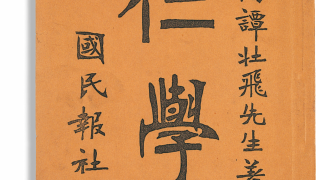 譚壯飛先生著
仁學
國民報社